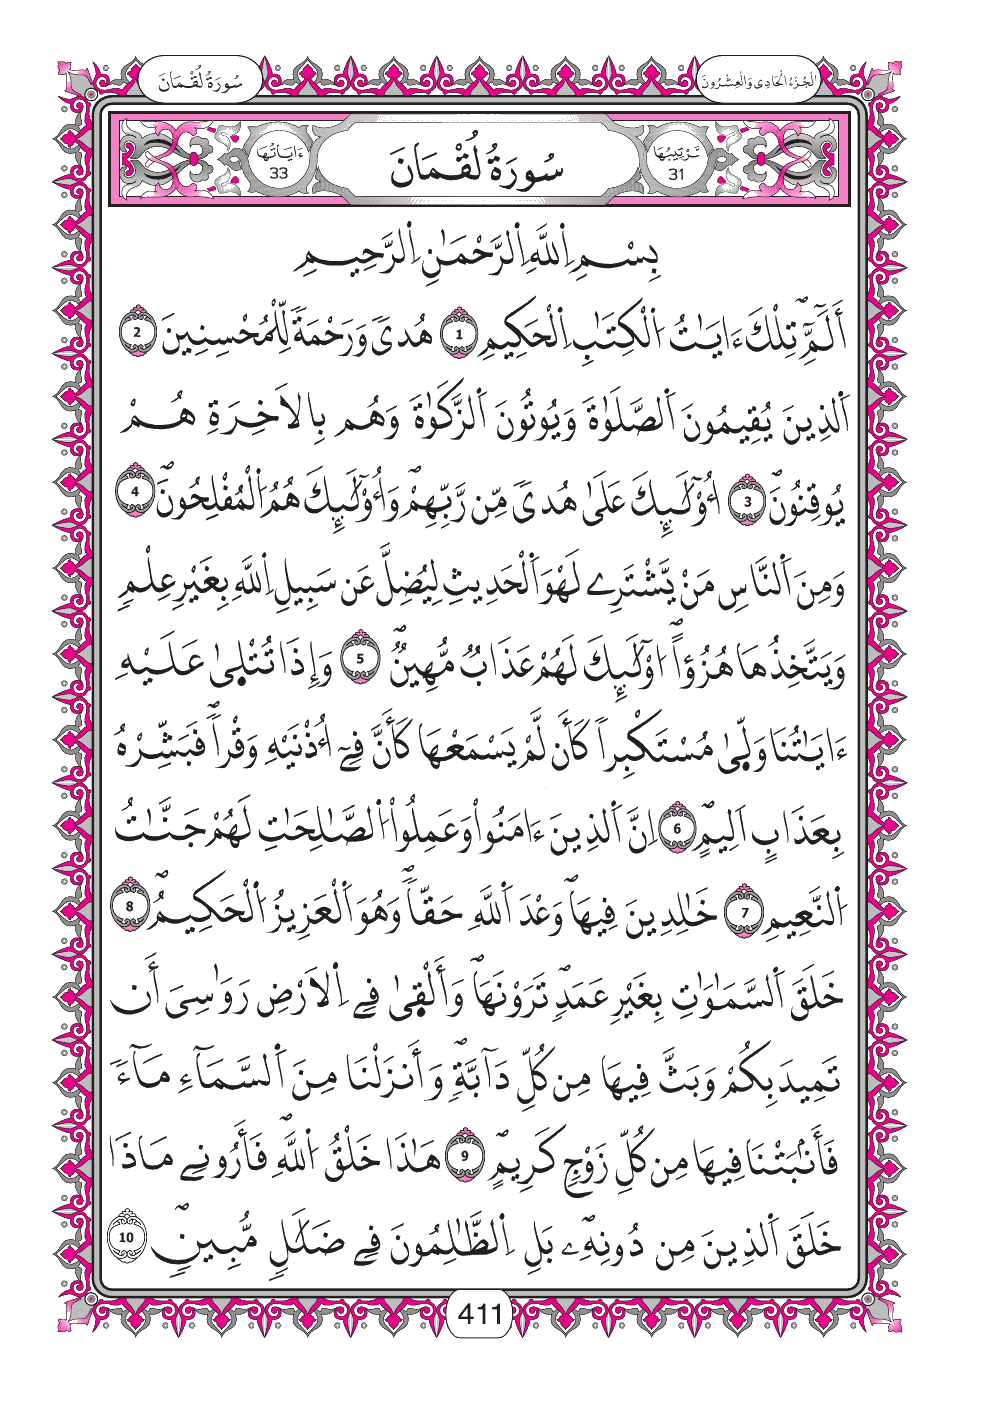 سُورَةُ لُقْمَانَ
اَ۬لْجُزْءُ اَ۬لْحَادِي وَالْعِشْرُونَ
ءَايَاتُهَا 33
سُورَةُ لُقْمَانَ
تَرْتِيبُهَا 31
بِسْمِ اِ۬للَّهِ اِ۬لرَّحْمَٰنِ اِ۬لرَّحِيمِ
أَلَٓمِّٓۖ تِلْكَ ءَايَٰتُ اُ۬لْكِتَٰبِ اِ۬لْحَكِيمِ 1 هُدىٗ وَرَحْمَةٗ لِّلْمُحْسِنِينَ 2
اَ۬لذِينَ يُقِيمُونَ اَ۬لصَّلَوٰةَ وَيُوتُونَ اَ۬لزَّكَوٰةَ وَهُم بِالَاخِرَةِ هُمْ
يُوقِنُونَۖ 3 أُوْلَٰٓئِكَ عَلَىٰ هُدىٗ مِّن رَّبِّهِمْۖ وَأُوْلَٰٓئِكَ هُمُ اُ۬لْمُفْلِحُونَۖ 4
وَمِنَ اَ۬لنَّاسِ مَنْ يَّشْتَرِے لَهْوَ اَ۬لْحَدِيثِ لِيُضِلَّ عَن سَبِيلِ اِ۬للَّهِ بِغَيْرِ عِلْمٖ
وَيَتَّخِذُهَا هُزُؤاًۖ ا۟وْلَٰٓئِكَ لَهُمْ عَذَابٞ مُّهِينٞۖ 5 وَإِذَا تُتْلَىٰ عَلَيْهِ
ءَايَٰتُنَا وَلَّىٰ مُسْتَكْبِراٗ كَأَن لَّمْ يَسْمَعْهَا كَأَنَّ فِےٓ أُذْنَيْهِ وَقْراٗۖ فَبَشِّرْهُ
بِعَذَابٍ اَلِيمٍۖ 6 اِنَّ اَ۬لذِينَ ءَامَنُواْ وَعَمِلُواْ اُ۬لصَّٰلِحَٰتِ لَهُمْ جَنَّٰتُ
اُ۬لنَّعِيمِ 7 خَٰلِدِينَ فِيهَاۖ وَعْدَ اَ۬للَّهِ حَقّاٗۖ وَهُوَ اَ۬لْعَزِيزُ اُ۬لْحَكِيمُۖ 8
خَلَقَ اَ۬لسَّمَٰوَٰتِ بِغَيْرِ عَمَدٖ تَرَوْنَهَاۖ وَأَلْقَىٰ فِے اِ۬لَارْضِ رَوَٰسِيَ أَن
تَمِيدَ بِكُمْ وَبَثَّ فِيهَا مِن كُلِّ دَآبَّةٖۖ وَأَنزَلْنَا مِنَ اَ۬لسَّمَآءِ مَآءٗ
فَأَنۢبَتْنَا فِيهَا مِن كُلِّ زَوْجٖ كَرِيمٍۖ 9 هَٰذَا خَلْقُ اُ۬للَّهِۖ فَأَرُونِے مَاذَا
خَلَقَ اَ۬لذِينَ مِن دُونِهِۦۖ بَلِ اِ۬لظَّٰلِمُونَ فِے ضَلَٰلٖ مُّبِينٖۖ 10
411